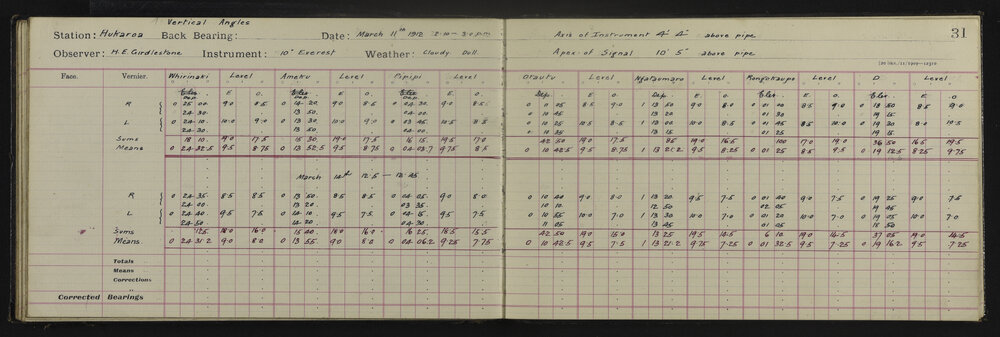 Vertical Angles
Station: Hukaroa Back Bearing: Date: March 11th 1912 2.10 — 3.0 p.m. Axis of Instrument 4' 4" above pipe 31
Observer: H.E. Girdlestone Instrument: 10" Everest Weather: Cloudy Dull. Apex of Signal 10' 5" above pipe
Face. Vernier. Whirinaki Level Ameku Level Pipipi Level Otautu Level Ngataumaro Level Rongokaupo Level D Level
Elev. E. O. Dep. E. O. Elev. E. O. Dep. E. O. Dep. E. O. Elev. E. O. Elev. E. O.
R 0 25 00 9.0 8.5 0 14 20 9.0 8.5 0 04 30 9.0 8.5 0 11 05 8.5 9.0 1 13 50 9.0 8.0 0 01 00 8.5 9.0 0 18 50 8.5 9.0
24 30 13 50 04 00 10 45 13 20 01 30 19 15
L 0 24 10 10.0 9.0 0 13 30 10.0 9.0 0 03 45 10.5 8.5 0 10 25 10.5 8.5 1 13 00 10.0 8.5 0 01 45 8.5 10.0 0 19 30 8.0 10.5
24 30 13 50 04 00 10 35 13 15 01 25 19 15
Sums 18 10 19.0 17.5 15 30 19.0 17.5 16 15 19.5 17.0 42 50 19.0 17.5 85 19.0 16.5 100 17.0 19.0 36 50 16.5 19.5
Means 0 24 32.5 9.5 8.75 0 13 52.5 9.5 8.75 0 04 03.7 9.75 8.5 0 10 42.5 9.5 8.75 1 13 21.2 9.5 8.25 0 01 25 8.5 9.5 0 19 12.5 8.25 9.75
March 14th 12.5 — 12.45
R 0 24 35 8.5 8.5 0 13 50 8.5 8.5 0 04 05 9.0 8.0 0 10 40 9.0 8.0 1 13 20 9.5 7.5 0 01 40 9.0 7.5 0 19 25 9.0 7.5
24 00 13 20 03 35 10 10 12 50 02 05 19 45
L 0 24 40 9.5 7.5 0 14 10 9.5 7.5 0 04 15 9.5 7.5 0 10 55 10.0 7.0 1 13 30 10.0 7.0 0 01 20 10.0 7.0 0 19 05 10.0 7.0
24 50 14 20 04 30 11 05 13 45 01 05 18 50
Sums 125 18.0 16.0 15 40 18.0 16.0 16 25 18.5 15.5 42 50 19.0 15.0 13 25 19.5 14.5 6 10 19.0 14.5 37 05 19.0 14.5
Means. 0 24 31.2 9.0 8.0 0 13 55 9.0 8.0 0 04 06.2 9.25 7.75 0 10 42.5 9.5 7.5 1 13 21.2 9.75 7.25 0 01 32.5 9.5 7.25 0 19 16.2 9.5 7.25
Totals
Means
Corrections
Corrected Bearings